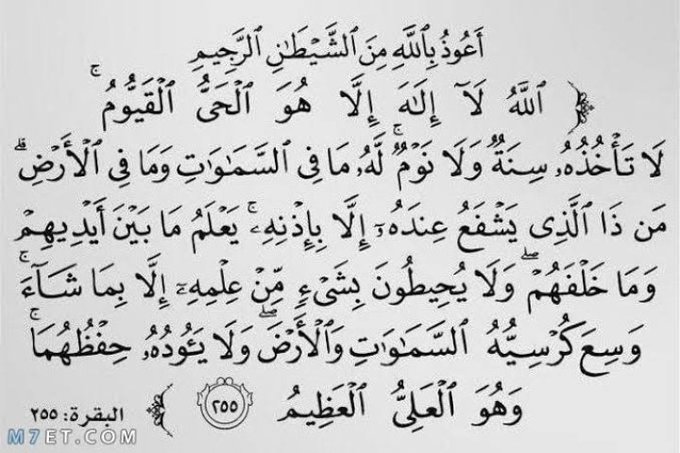 أَعُوذُ بِٱللَّهِ مِنَ ٱلشَّيْطَٰنِ ٱلرَّجِيمِ
﴿ ٱللَّهُ لَآ إِلَٰهَ إِلَّا هُوَ ٱلْحَىُّ ٱلْقَيُّومُ ۚ
لَا تَأْخُذُهُۥ سِنَةٌ وَلَا نَوْمٌ ۚ لَّهُۥ مَا فِى ٱلسَّمَٰوَٰتِ وَمَا فِى ٱلْأَرْضِ ۗ
مَن ذَا ٱلَّذِى يَشْفَعُ عِندَهُۥٓ إِلَّا بِإِذْنِهِۦ ۚ يَعْلَمُ مَا بَيْنَ أَيْدِيهِمْ
وَمَا خَلْفَهُمْ ۖ وَلَا يُحِيطُونَ بِشَىْءٍ مِّنْ عِلْمِهِۦٓ إِلَّا بِمَا شَآءَ ۚ
وَسِعَ كُرْسِيُّهُ ٱلسَّمَٰوَٰتِ وَٱلْأَرْضَ ۖ وَلَا يَـُٔودُهُۥ حِفْظُهُمَا ۚ
وَهُوَ ٱلْعَلِىُّ ٱلْعَظِيمُ ٢٥٥ ﴾ البقرة: ٢٥٥
M7ET.COM